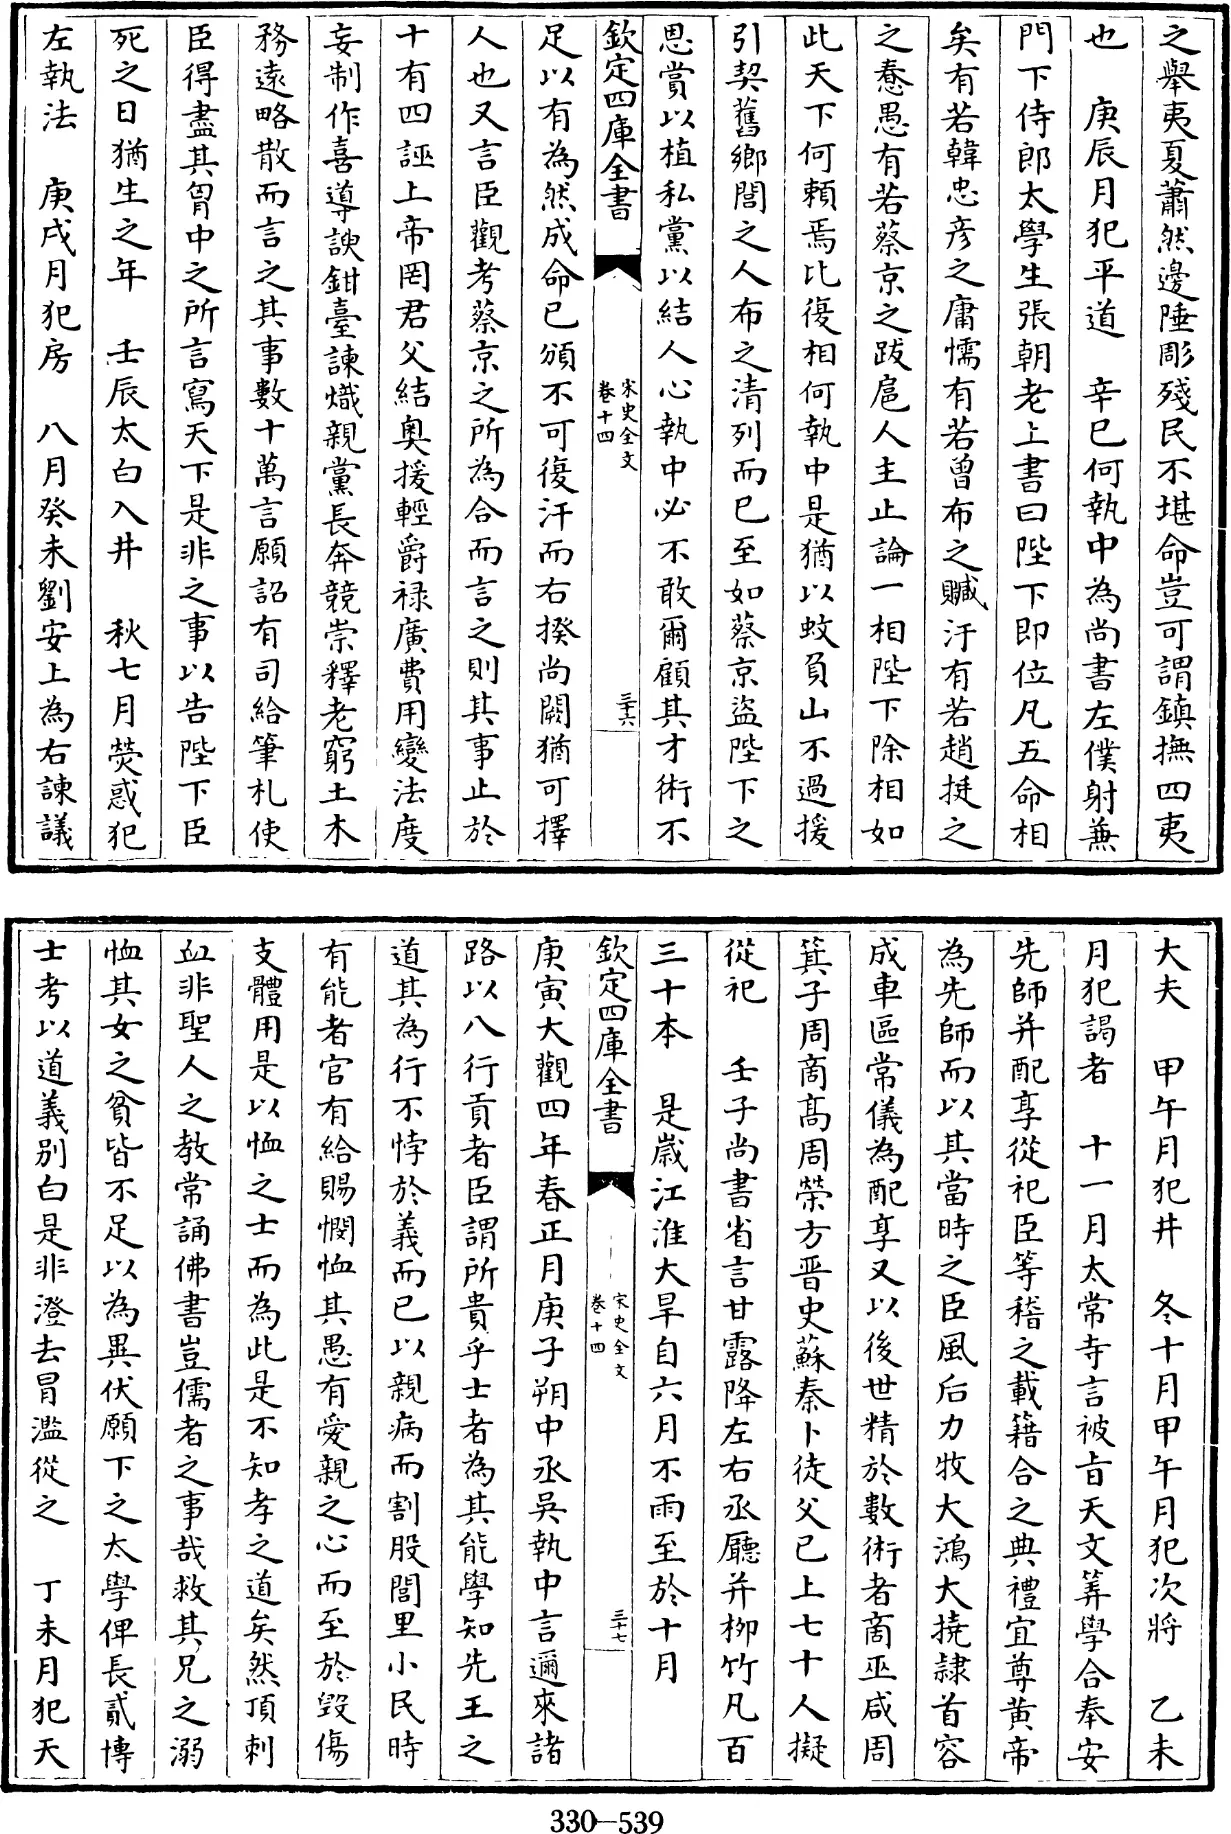 之舉夷夏蕭然邊陲彫殘民不堪命豈可謂鎮撫四夷
也　庚辰月犯平道　辛巳何執中為尚書左僕射兼
門下侍郎太學生張朝老上書曰陛下即位凡五命相
矣有若韓忠彦之庸懦有若曾布之贓汙有若趙挺之
之惷愚有若蔡京之跋扈人主止論一相陛下除相如
此天下何頼焉比復相何執中是猶以蚊負山不過援
引契舊鄉閭之人布之清列而已至如蔡京盜陛下之
恩賞以植私黨以結人心執中必不敢爾顧其才術不
欽定四庫全書
宋史全文
卷十四
三十六
足以有為然成命已頒不可復汗而右揆尚闕猶可擇
人也又言臣觀考蔡京之所為合而言之則其事止於
十有四誣上帝罔君父結奧援輕爵禄廣費用變法度
妄制作喜導諛鉗臺諫熾親黨長奔競崇釋老窮土木
務遠略散而言之其事數十萬言願詔有司給筆札使
臣得盡其胷中之所言寫天下是非之事以告陛下臣
死之日猶生之年　壬辰太白入井　秋七月熒惑犯
左執法　庚戌月犯房　八月癸未劉安上為右諫議
大夫　甲午月犯井　冬十月甲午月犯次將　乙未
月犯謁者　十一月太常寺言被㫖天文筭學合奉安
先師并配享從祀臣等稽之載籍合之典禮宜尊黄帝
為先師而以其當時之臣風后力牧大鴻大撓隷首容
成車區常儀為配享又以後世精於數術者商巫咸周
箕子周商髙周榮方晋史蘇秦卜徒父已上七十人擬
從祀　壬子尚書省言甘露降左右丞廳并柳竹凡百
三十本　是歳江淮大旱自六月不雨至於十月
欽定四庫全書
宋史全文
卷十四
三十七
庚寅大觀四年春正月庚子朔中丞吳執中言邇來諸
路以八行貢者臣謂所貴乎士者為其能學知先王之
道其為行不悖於義而已以親病而割股閭里小民時
有能者官有給賜憫恤其愚有愛親之心而至於毀傷
支體用是以恤之士而為此是不知孝之道矣然頂刺
血非聖人之教常誦佛書豈儒者之事哉救其兄之溺
恤其女之貧皆不足以為異伏願下之太學俾長貳博
士考以道義别白是非澄去冒濫從之　丁未月犯天
330—539